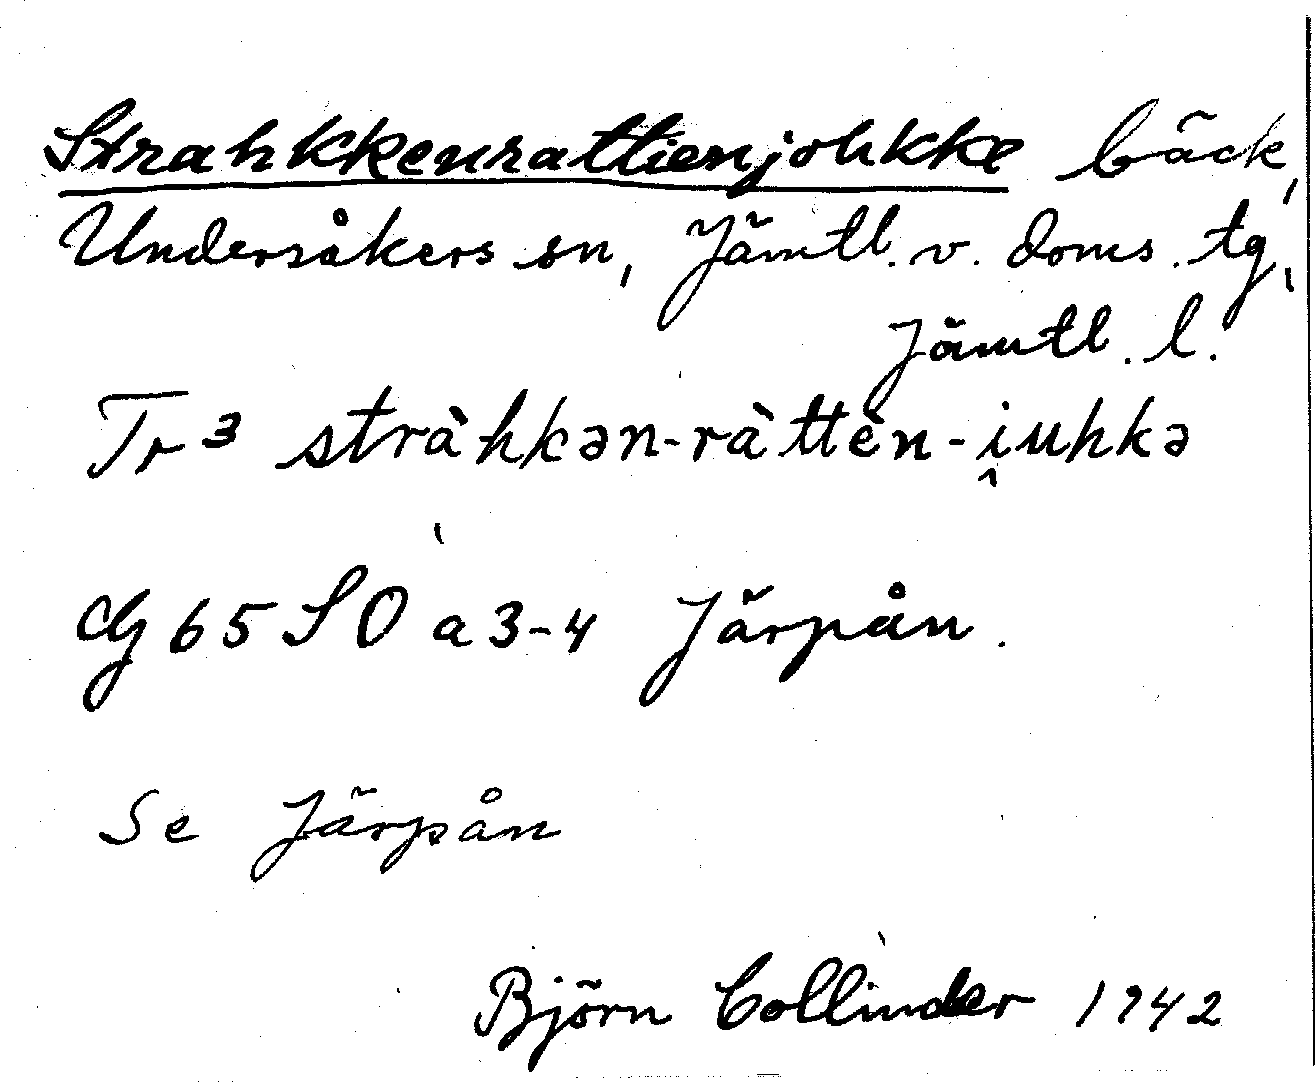 Strahkkenrattienjohkke bäck,
Undersåkers sn, Jämtl. v. doms. tg,
Jämtl. l.
Tr 3 stràhkən-ràttèn-i̯uhkə
Gg 65 SO a 3-4 Järpån.
Se Järpån
Björn Collinder 1942